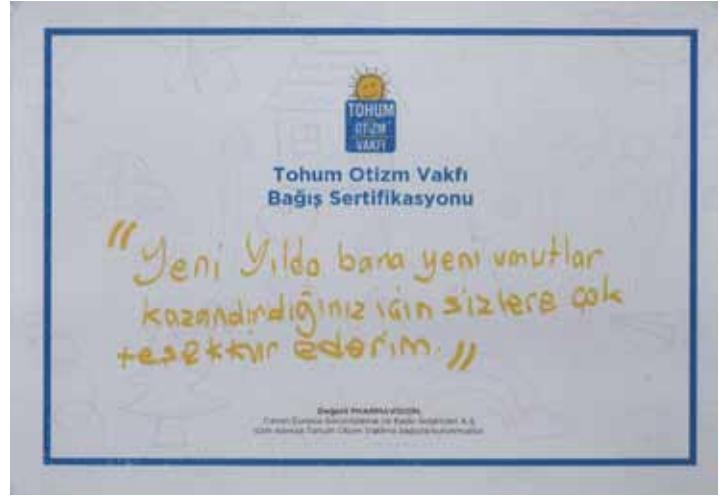 TOHUM
OTİZM
VAKFI
Tohum Otizm Vakfı
Bağış Sertifikasyonu
"Yeni Yılda bana yeni umutlar
kazandırdığınız için sizlere çok
teşekkür ederim."
Değerli PHARMAVISION,